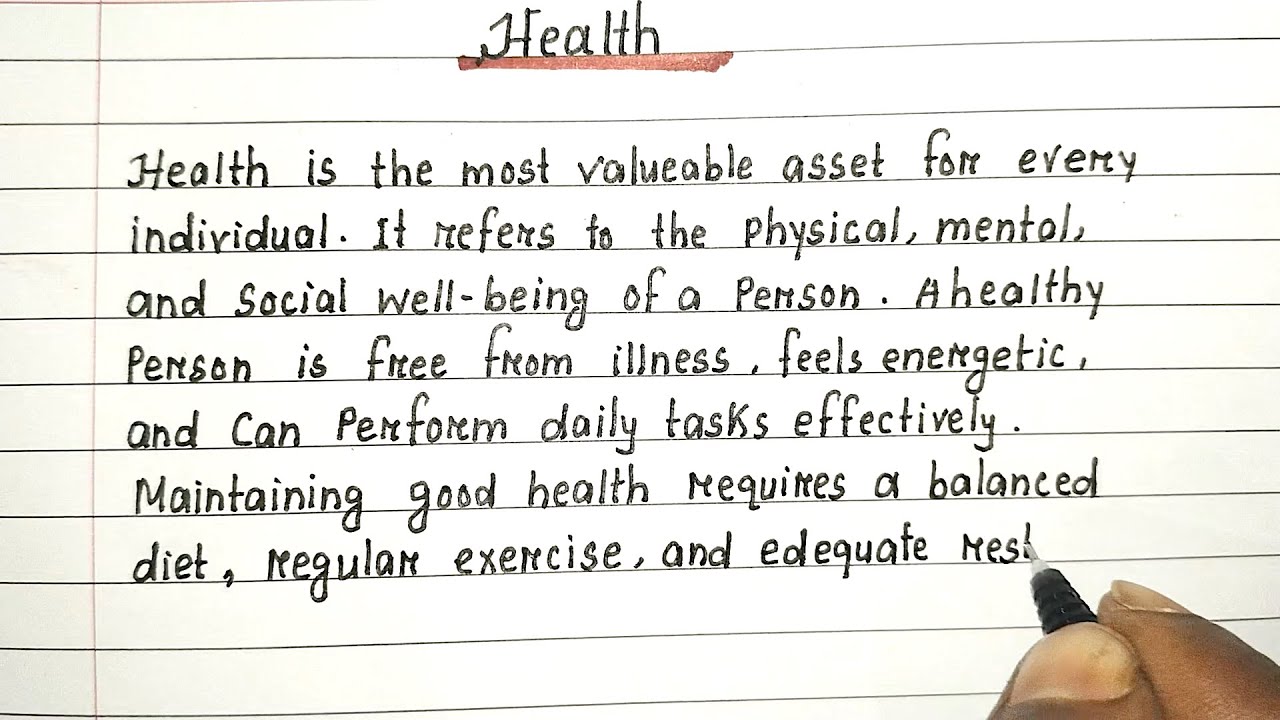 Health
Health is the most valueable asset for every
individual. It refers to the physical, mental,
and Social well-being of a Person. A healthy
Person is free from illness, feels energetic,
and Can Perform daily tasks effectively.
Maintaining good health requires a balanced
diet, regular exercise, and edequate rest